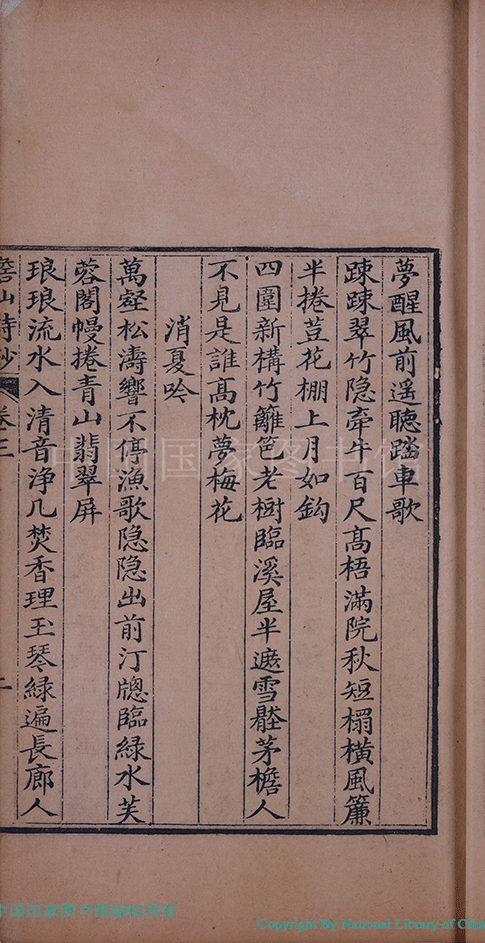 夢醒風前遥聽踏車歌
踈踈翠竹隐牽牛百尺髙梧滿院秋短榻橫風簾
半捲荳花棚上月如鈎
四圍新構竹籬笆老樹臨溪屋半遮雪壓茅檐人
不見是誰髙枕夢梅花
消夏吟
萬壑松濤響不停漁歌隐隐出前汀牕臨緑水芙
蓉閣幔捲青山翡翠屏
琅琅流水入清音浄几焚香理玉琴緑遍長廊人
山詩鈔 卷三
中国国家图书馆
中国国家图书馆版权所有
Copyright By National Library of China